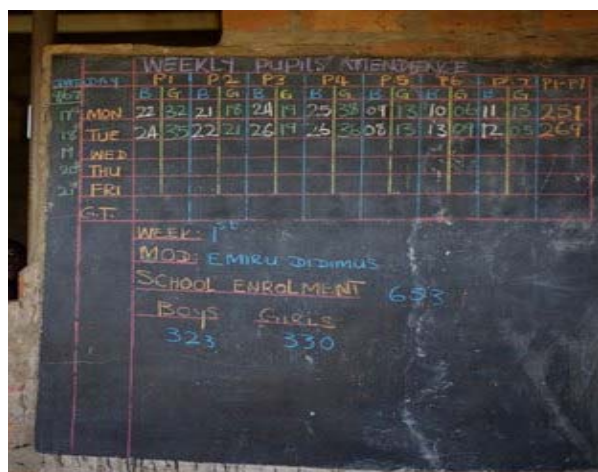 WEEKLY PUPILS' ATTENDENCE
DATE DAY P1 P2 P3 P4 P5 P6 P.7 P1-P7
B G B G B G B G B G B G B G
17th MON 22 32 21 18 24 19 25 38 09 13 10 06 11 13
18th TUE 24 35 22 21 26 19 26 36 08 13 13 09 12 05 269
19th WED
20th THU
21st FRI
G.T.
WEEK: 1st
MOD: EMIRU DIDIMUS
SCHOOL ENROLMENT 653
BOYS GIRLS
323 330